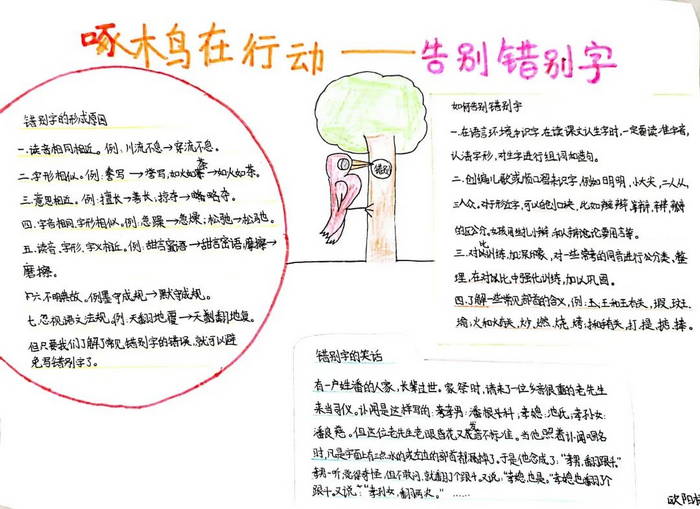 啄木鸟在行动——告别错别字
错别字的形成原因
一.读音相同相近。例:川流不息→穿流不息。
二.字形相似。例:誊写→誉写,如火如荼→如火如茶。
三.意思相近。例:擅长→善长,掠夺→略夺。
四.字音相同,字形相似。例:急躁→急燥;松弛→松驰。
五.读音、字形、字义相近。例:甜言蜜语→甜言密语,磨擦→
磨擦。
六.不明典故。例墨守成规→默守成规。
七.忽视语文法规。例:天翻地覆→天翻地复。
但只要我们了解了常见错别字的错误,就可以避
免写错别字了。
错别
如何告别错别字
一.在语言环境中识字,在读课文认生字时,一定要读准字音,
认清字形,对生字进行组词如造句。
二.创编儿歌或顺口溜来识字,例如日月明,小大尖,二人从,
三人众。对于形近字,可以
三.对比训练,加深印象,对一些常考的同音进行公分类。整
理,在对比中强化训练,加以巩固。
四.了解一些常见部首的含义,例:
火和火有关,炒、燃、烧、烤;
错别字的笑话
有一户姓潘的人家,长辈过世。家祭时,请来了一位乡音很重的老先生
来当司仪。讣闻是这样写的:孝男:潘根科,孝媳:池氏,孝孙女:
潘良慈。但这位老先生老眼昏花又发音不标准。当他照着讣闻唱名
时,凡是字面上有三点水的或左边的部首都漏掉了。于是他念成了:“孝男,翻跟斗。”
孝男一听,觉得奇怪,但不敢问,就翻了个跟斗。又说:“孝媳,也是。”孝媳也翻了个
跟斗。又说:“孝孙女,翻两次。”……